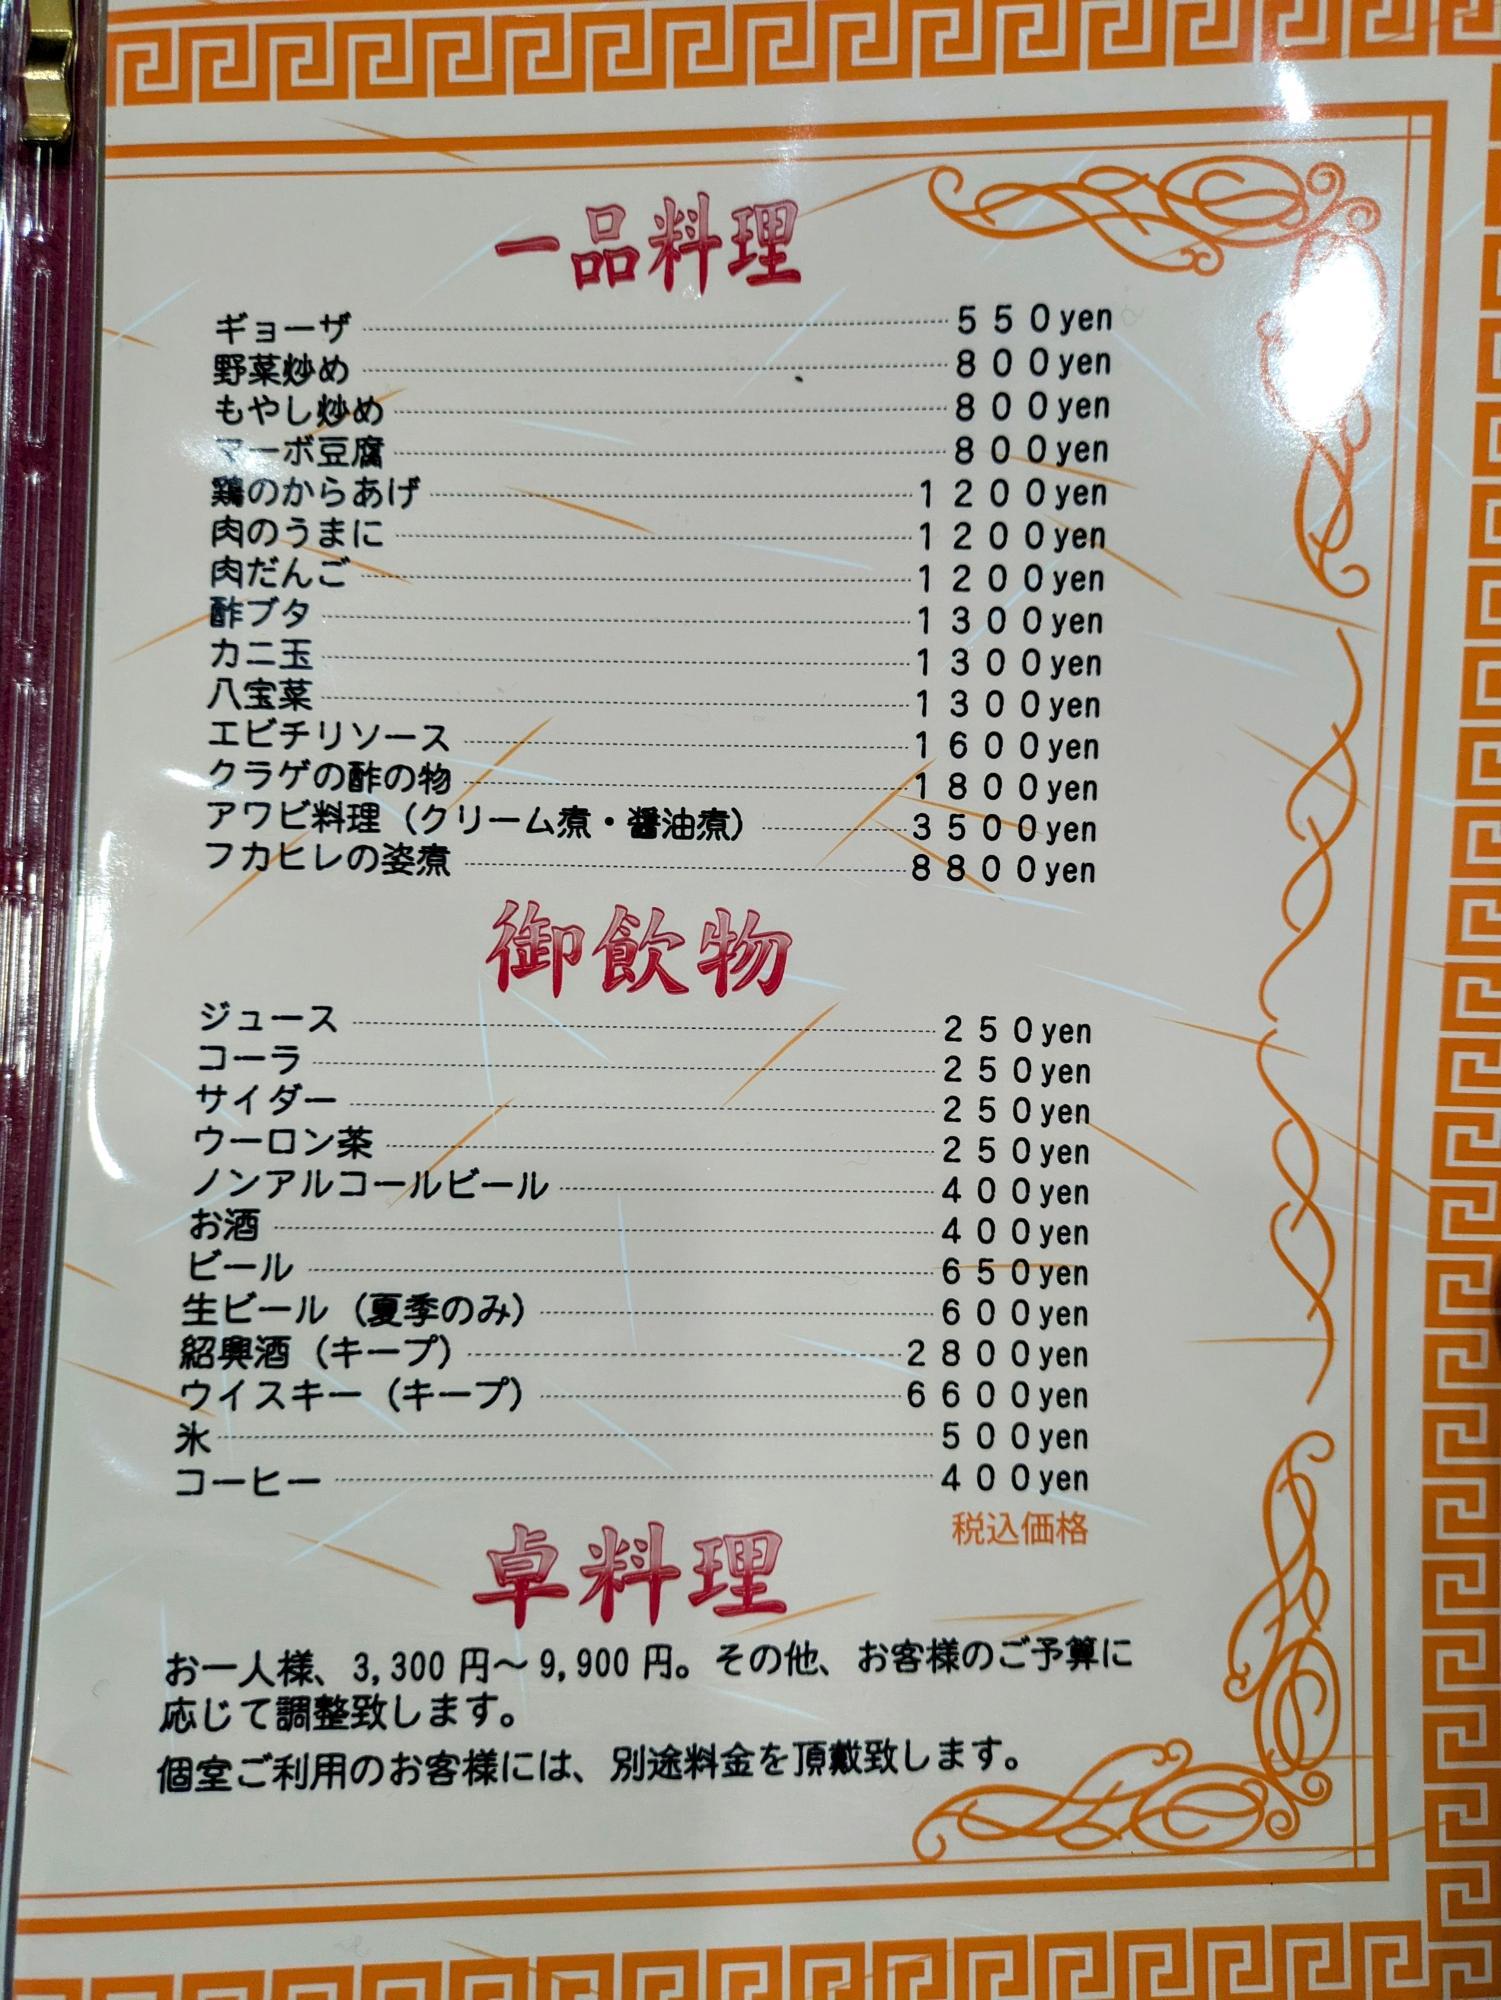 一品料理
ギョーザ 550yen
野菜炒め 800yen
もやし炒め 800yen
マーボ豆腐 800yen
鶏のからあげ 1200yen
肉のうまに 1200yen
肉だんご 1200yen
酢ブタ 1300yen
カニ玉 1300yen
八宝菜 1300yen
エビチリソース 1600yen
クラゲの酢の物 1800yen
アワビ料理（クリーム煮・醤油煮） 3500yen
フカヒレの姿煮 8800yen
御飲物
ジュース 250yen
コーラ 250yen
サイダー 250yen
ウーロン茶 250yen
ノンアルコールビール 400yen
お酒 400yen
ビール 650yen
生ビール（夏季のみ） 600yen
紹興酒（キープ） 2800yen
ウイスキー（キープ） 6600yen
氷 500yen
コーヒー 400yen
税込価格
卓料理
お一人様、3,300円〜9,900円。その他、お客様のご予算に
応じて調整致します。
個室ご利用のお客様には、別途料金を頂戴致します。